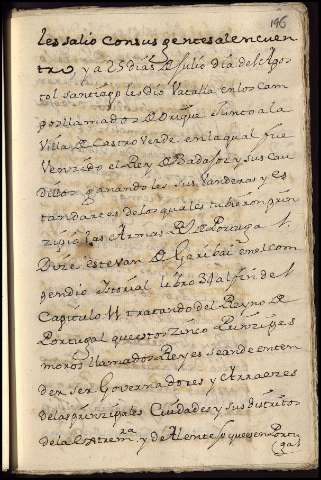 196
les salio con sus gentes al encuen
tro y a 25 dias de Julio dia del Apos
tol santiago les dio Vatalla en los cam
pos llamados de Orique Junto a la
Villa de Castro Verde en la qual fue
Venzido el Rey de Badajoz y sus Cau
dillos ganandoles sus Vanderas y es
tandartes de los quales tubieron prin
zipio las Armas de Portuga l.
Dize estevan de Garibai en el com
pendio Istorial libro 34 al fin de l
Capitulo 11 tratando del Reyno de
Portugal que estos zinco Prinzipes
moros llamados Reyes se an de enten
der ser Governadores y Arraezes
de las prinzipales Ciudades y sus distritos
de la Estrem.ra y de Alentejo que es en Portu
ga l